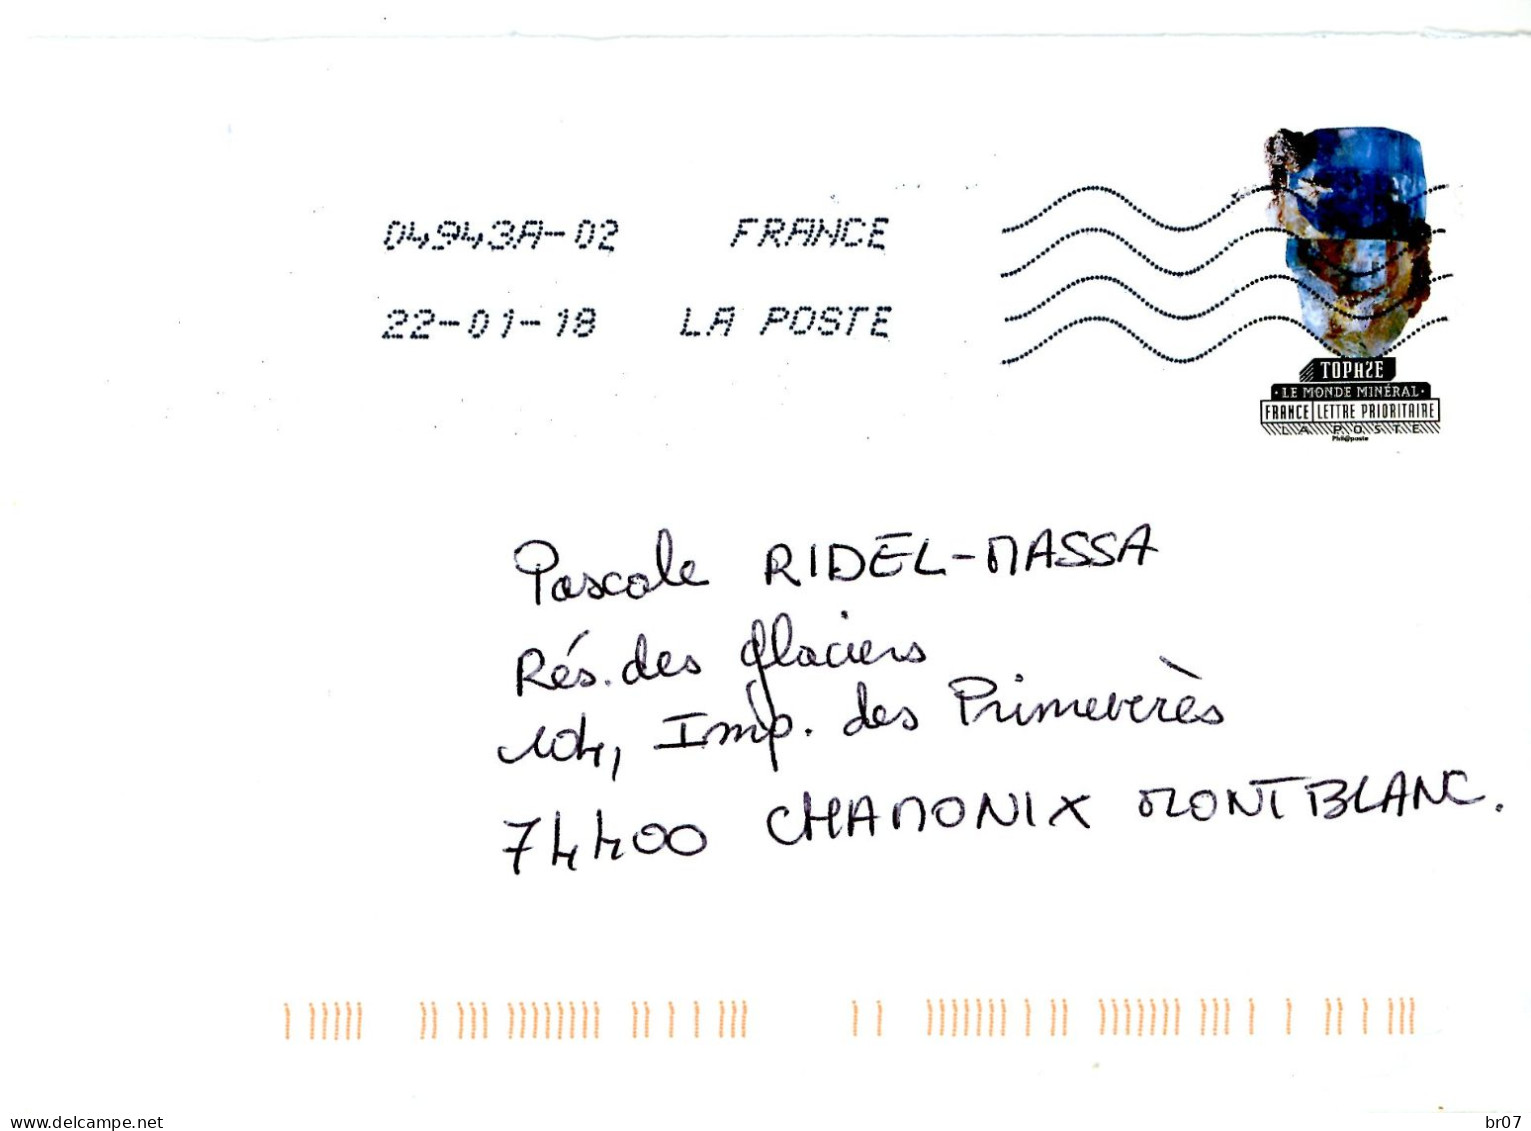 04943A-02 FRANCE
22-01-18 LA POSTE
TOPAZE
· LE MONDE MINÉRAL ·
FRANCE LETTRE PRIORITAIRE
LA POSTE
Phil@poste
Pascale RIDEL-MASSA
Rés. des glaciers
104, Imp. des Primeverès
74400 CHAMONIX MONTBLANC.
www.delcampe.net
br07